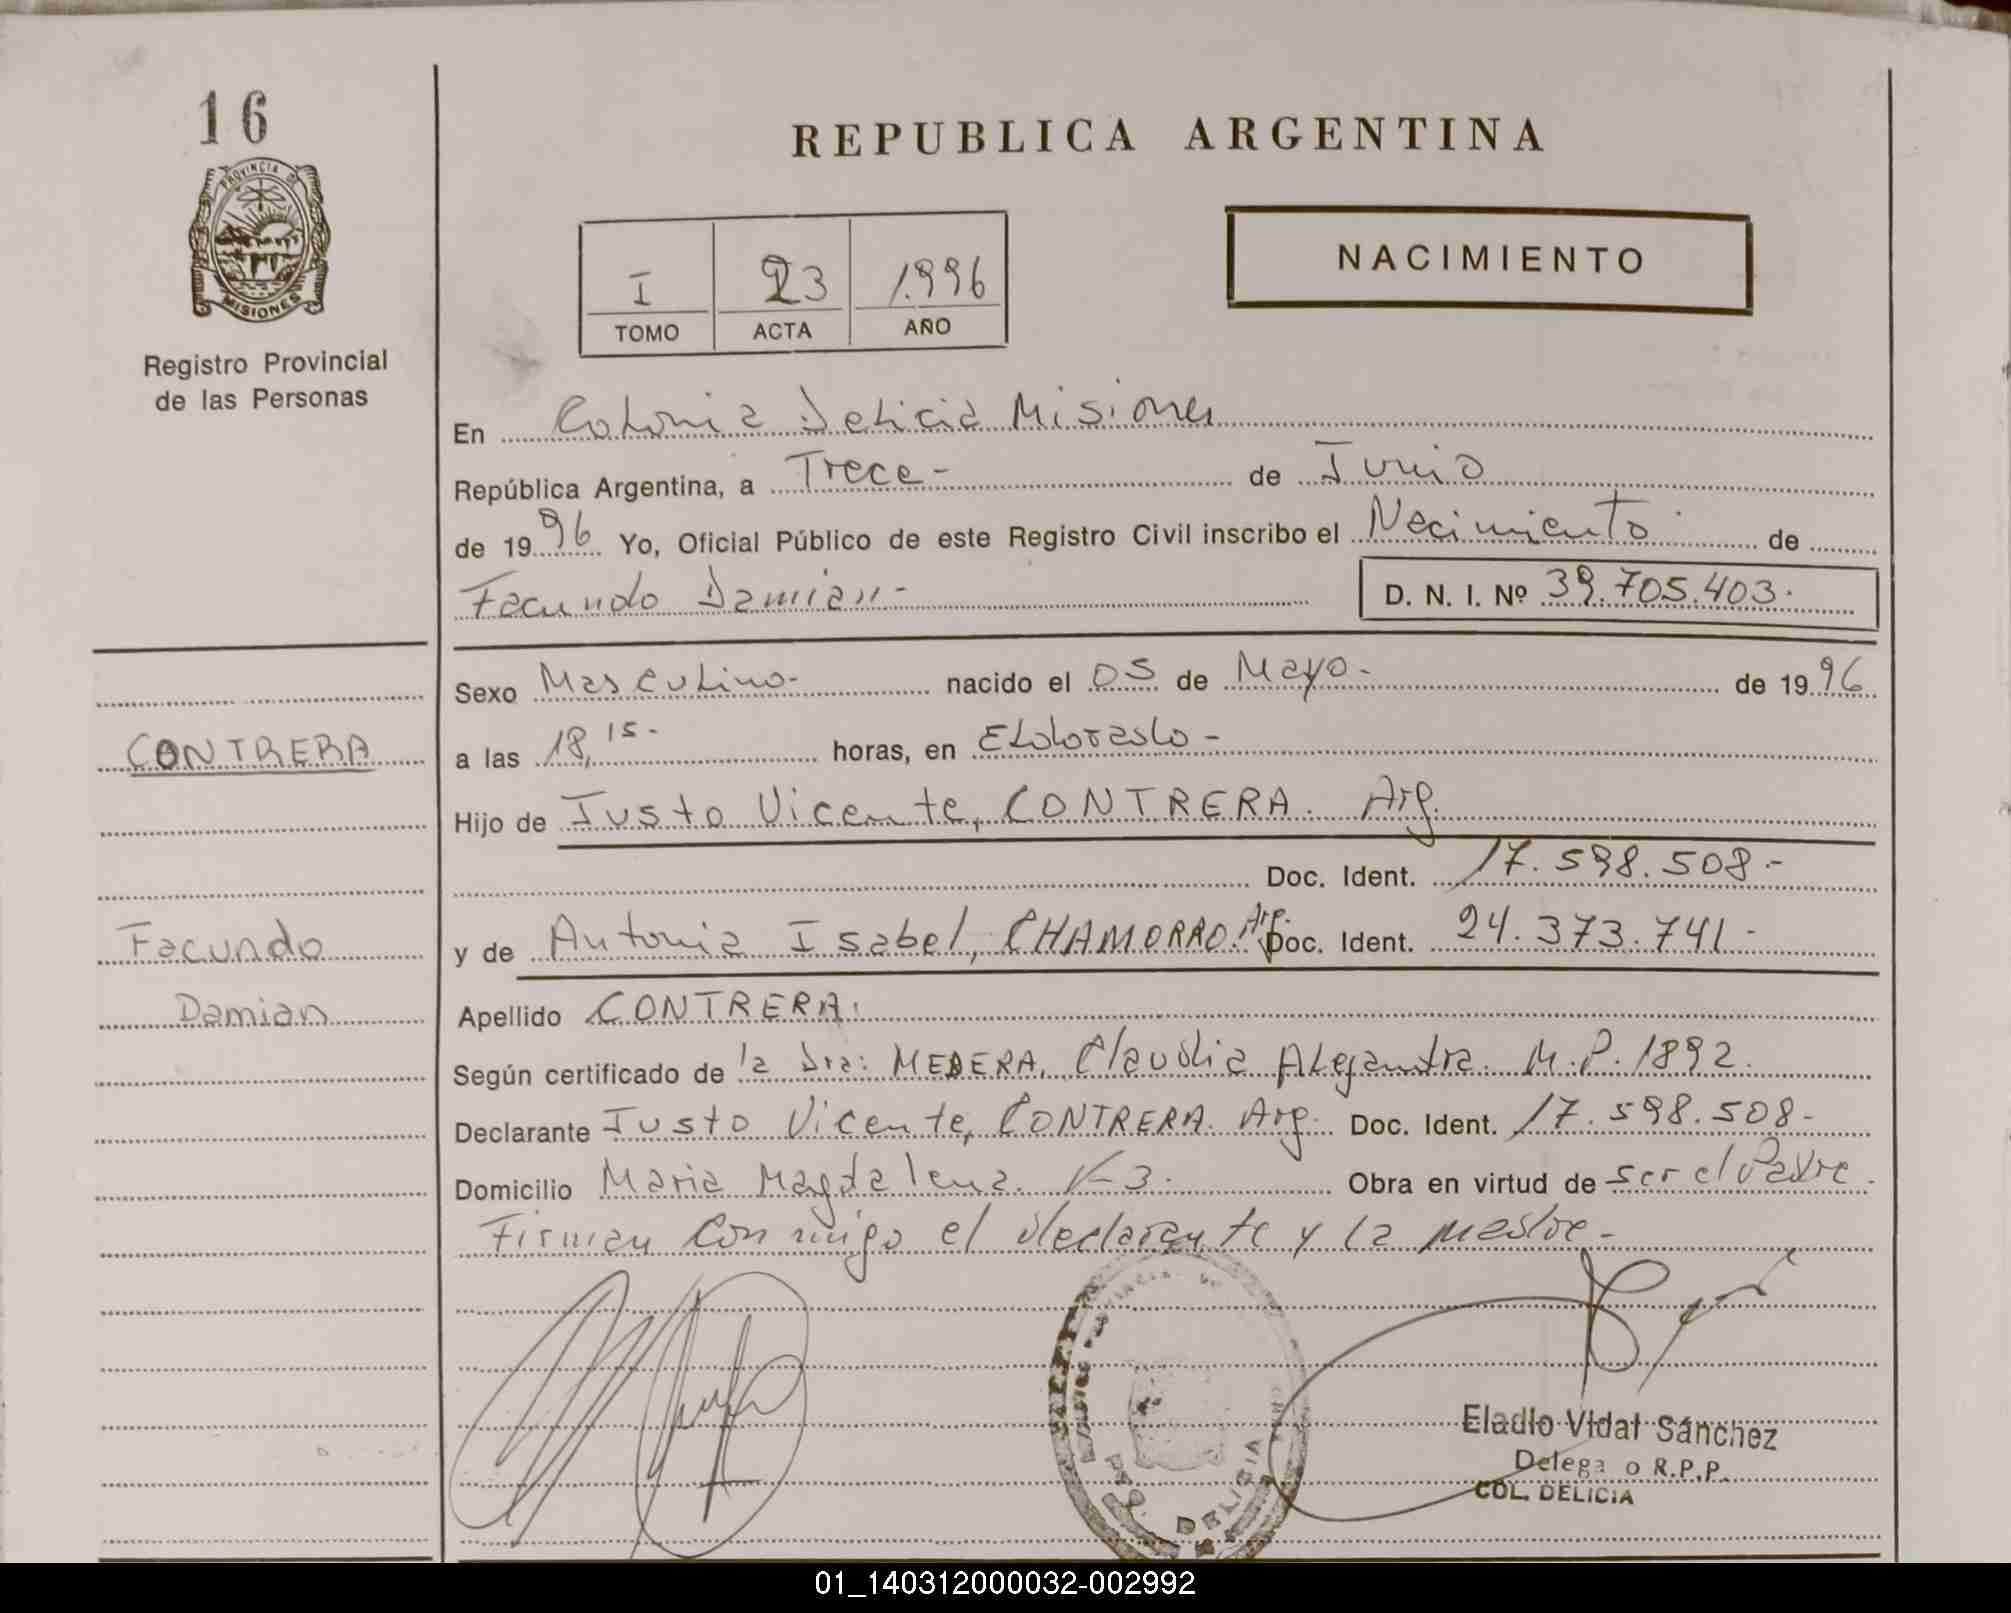 16
PROVINCIA DE
MISIONES
Registro Provincial
de las Personas
REPUBLICA ARGENTINA
NACIMIENTO
I 23 1.996
TOMO ACTA AÑO
En Colonia Delicia Misiones
República Argentina, a Trece - de Junio
de 1996 Yo, Oficial Público de este Registro Civil inscribo el Nacimiento de
Facundo Damian - D. N. I. Nº 39.705.403.
Sexo Masculino - nacido el 05 de Mayo - de 1996
a las 18,15 - horas, en Eldorado -
Hijo de Justo Vicente, CONTRERA. Arg.
Doc. Ident. 17.598.508.-
y de Antonia Isabel, CHAMORRO. Arg. Doc. Ident. 24.373.741 -
Apellido CONTRERA.
Según certificado de la Dra: MEDERA, Claudia Alejandra. M.P. 1892.
Declarante Justo Vicente, CONTRERA. Arg. Doc. Ident. 17.598.508-
Domicilio Maria Magdalena. K-3. Obra en virtud de ser el Padre.
Firman conmigo el declarante y la madre -
CONTRERA
Facundo
Damian
DELICIA
Eladio Vidal Sánchez
Delega o R.P.P.
COL. DELICIA
01_140312000032-002992